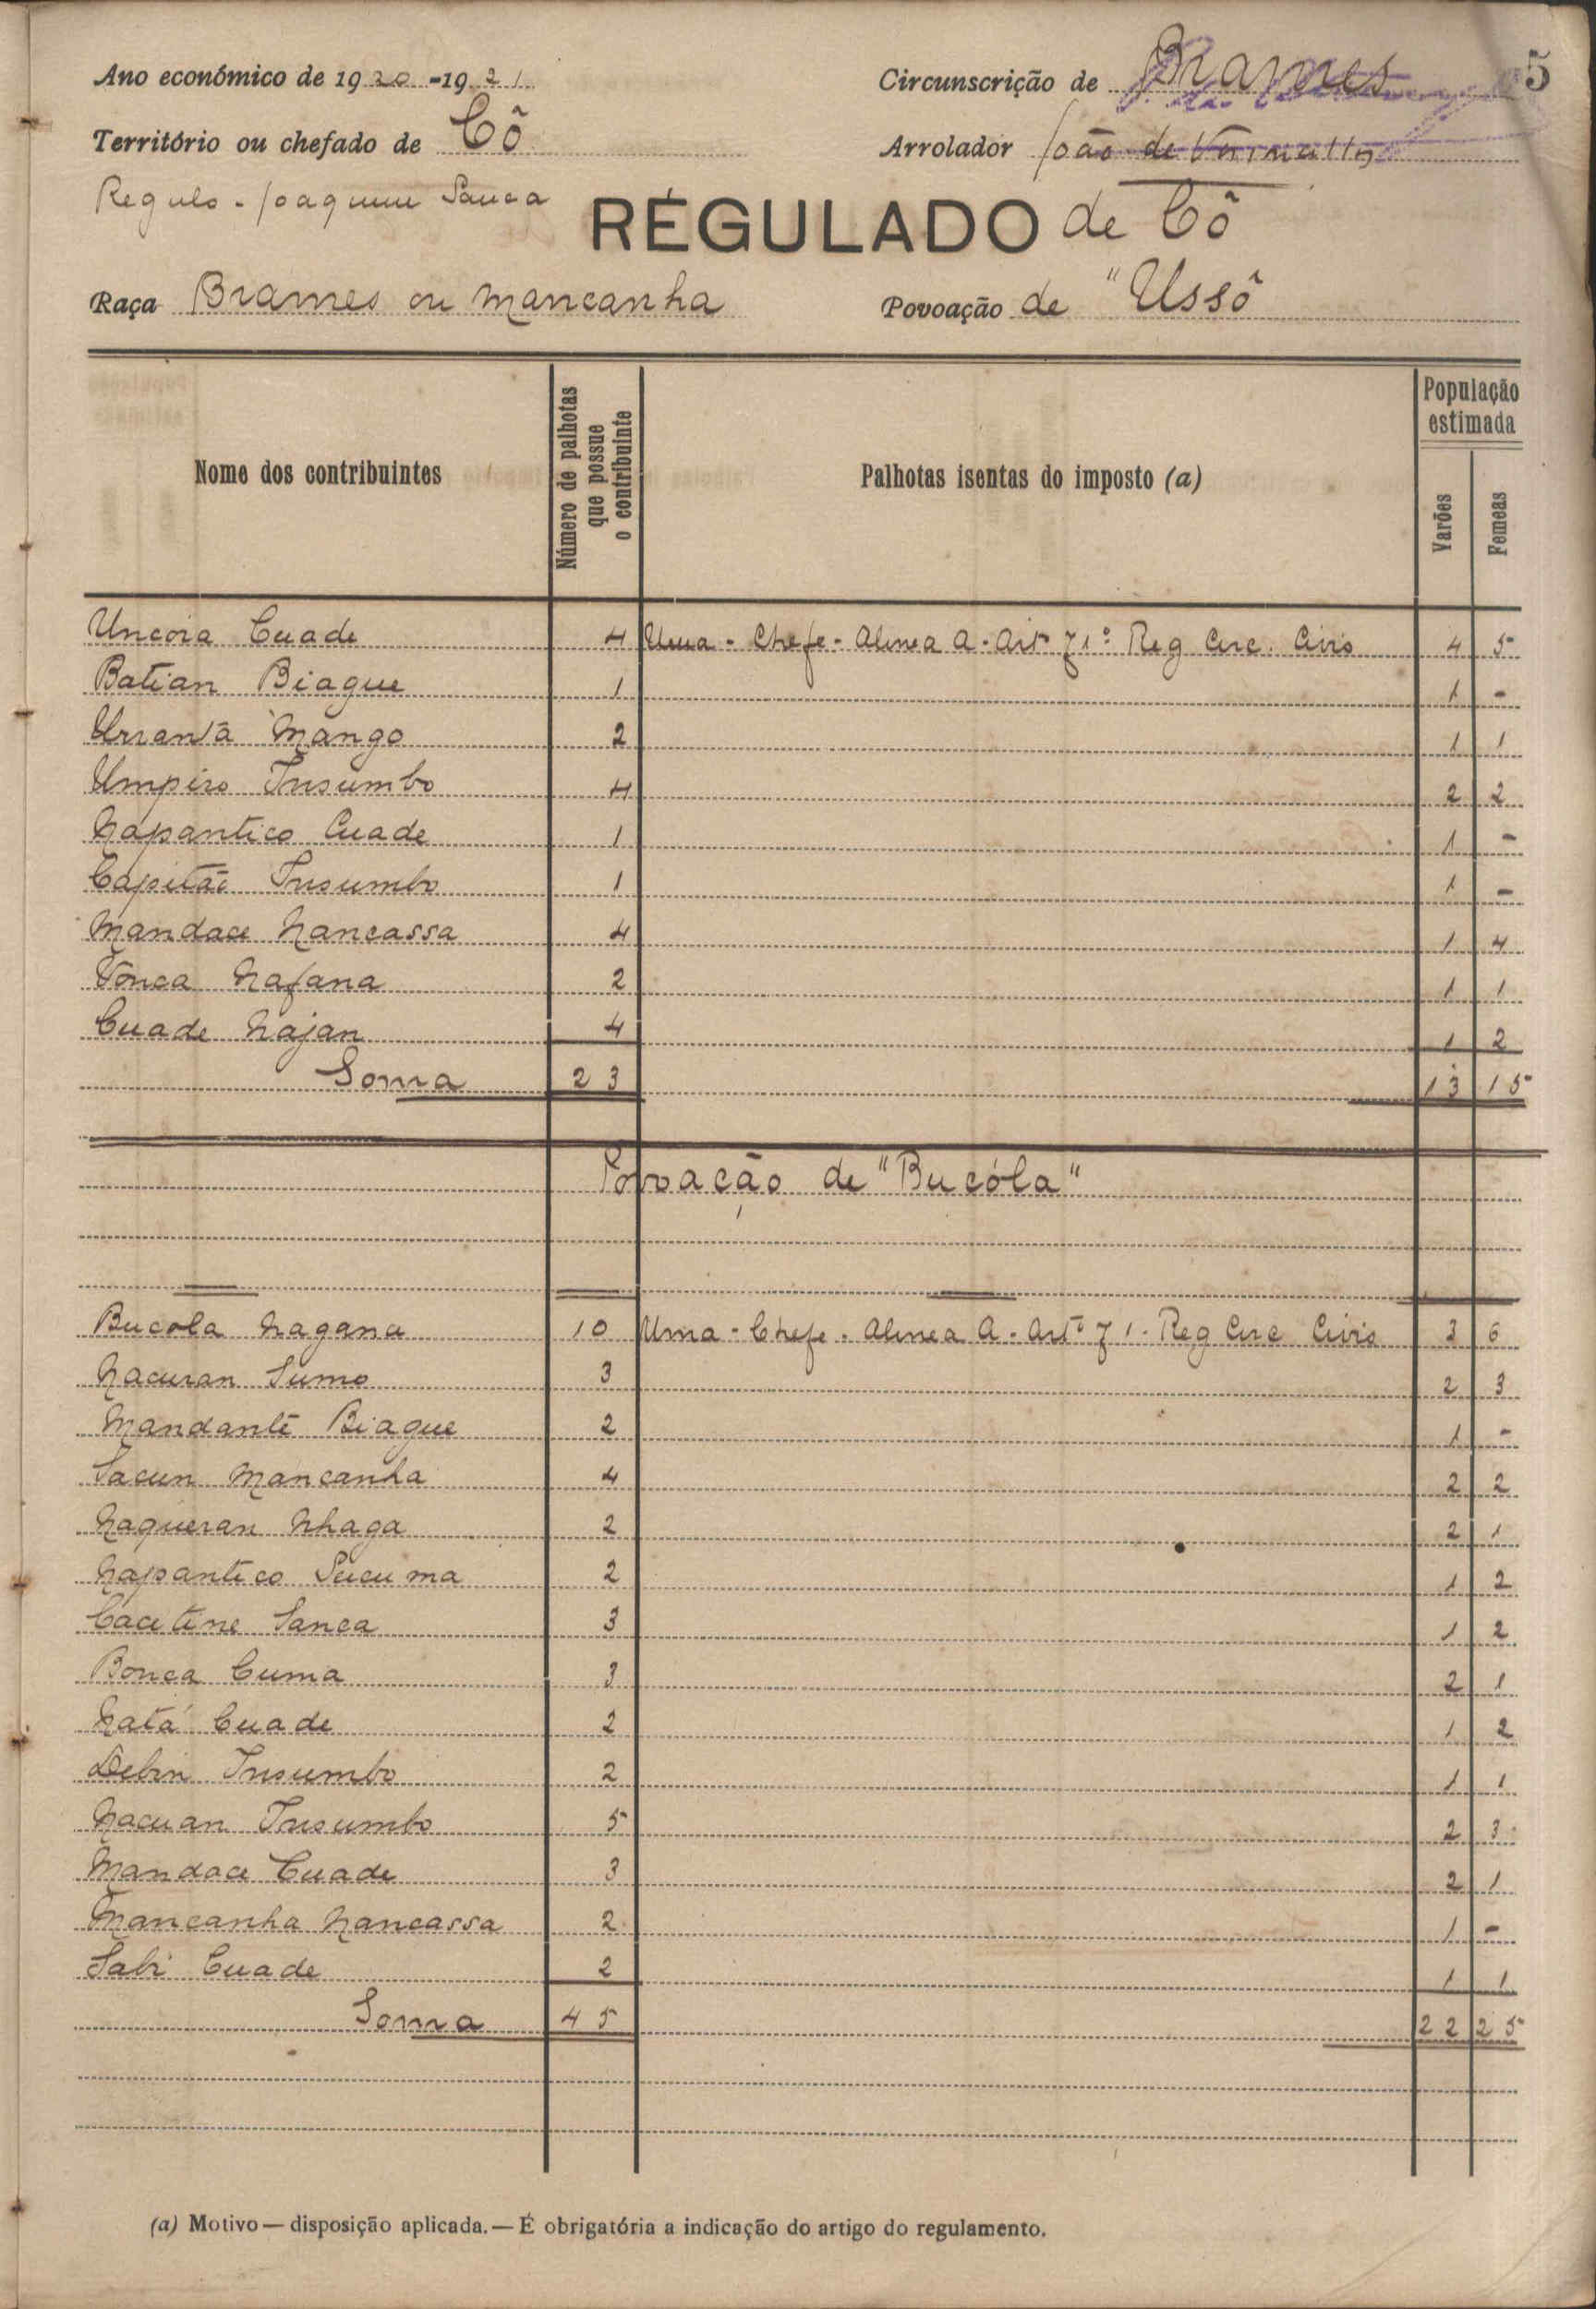 Ano económico de 1920-1921 Circunscrição de Brames 5
Território ou chefado de Cô Arrolador João de
Regulo - Joaquim Sanca
RÉGULADO de Cô
Raça Brames ou Mancanha Povoação de "Ussô
Nome dos contribuintes Número de palhotas que possue o contribuinte Palhotas isentas do imposto (a) População estimada Varões Femeas
Uncoia Cuade 4 Uma - Chefe - Alinea A - Artº 71º Reg Circ. Civis 4 5
Batian Biague 1 1 -
Urrantã Mango 2 1 1
Umpiro Insumbo 4 2 2
Napantico Cuade 1 1 -
Capitão Insumbo 1 1 -
Mandace Nancassa 4 1 4
Tonca Nafana 2 1 1
Cuade Najan 4 1 2
Soma 23 13 15
Povoação de "Bucóla"
Bucola Nagana 10 Uma - Chefe - Alinea A - Artº 71 - Reg Circ Civis 3 6
Nacuran Sumo 3 2 3
Mandantê Biague 2 1 -
Sacun Mancanha 4 2 2
Naqueran Nhaga 2 2 1
Napantico Sucuma 2 1 2
Cacetine Sanca 3 1 2
Bonca Cuma 3 2 1
Natá Cuade 2 1 2
Debin Insumbo 2 1 1
Nacuan Insumbo 5 2 3
Mandace Cuade 3 2 1
Mancanha Nancassa 2 1 -
Sabi Cuade 2 1 1
Soma 45 22 25
(a) Motivo — disposição aplicada. — É obrigatória a indicação do artigo do regulamento.